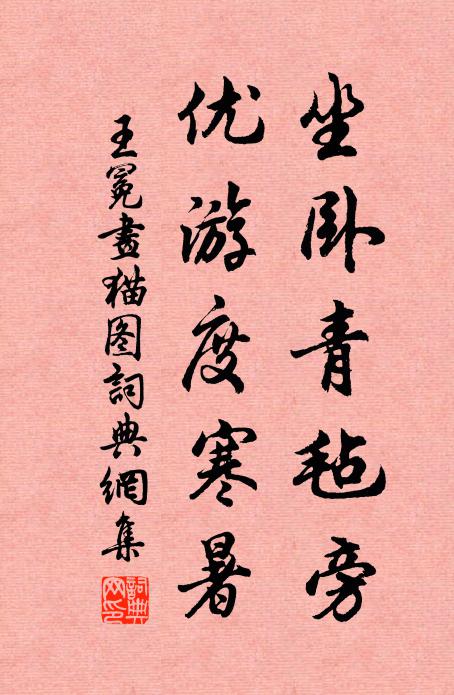 坐卧青毡旁
优游度寒暑
王冕畫猫图詞典網集
詞典网印